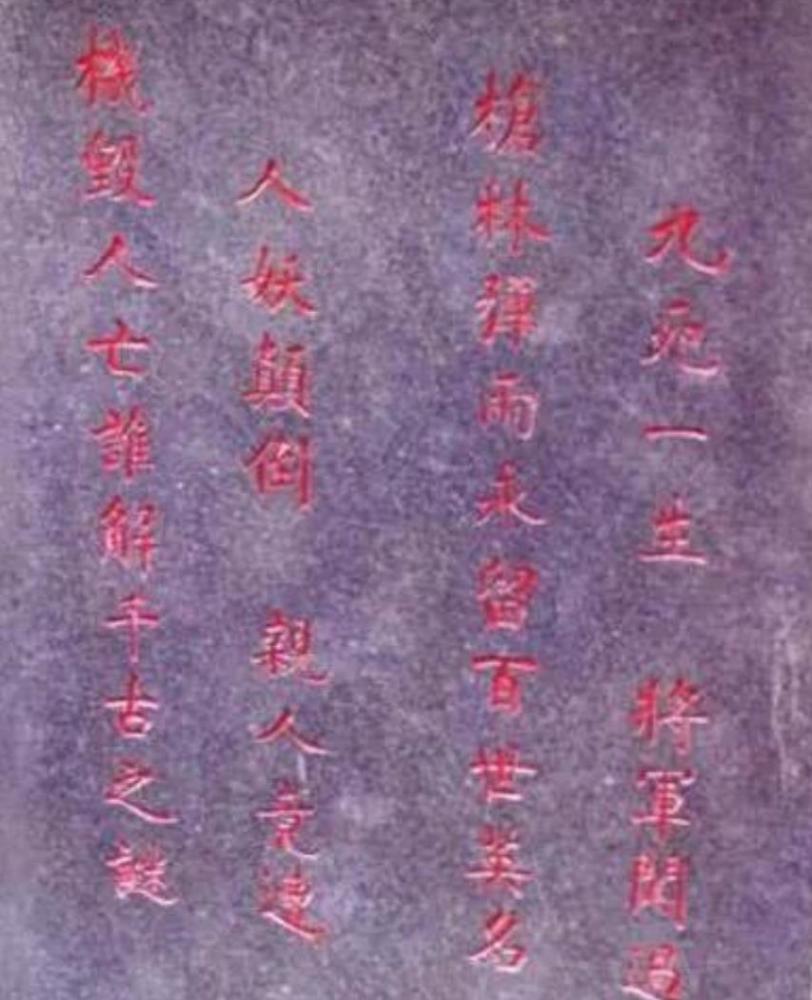 九死一生 將軍闖過
槍林彈雨永留百世英名
人妖顛倒 親人竟遭
機毀人亡誰解千古之謎